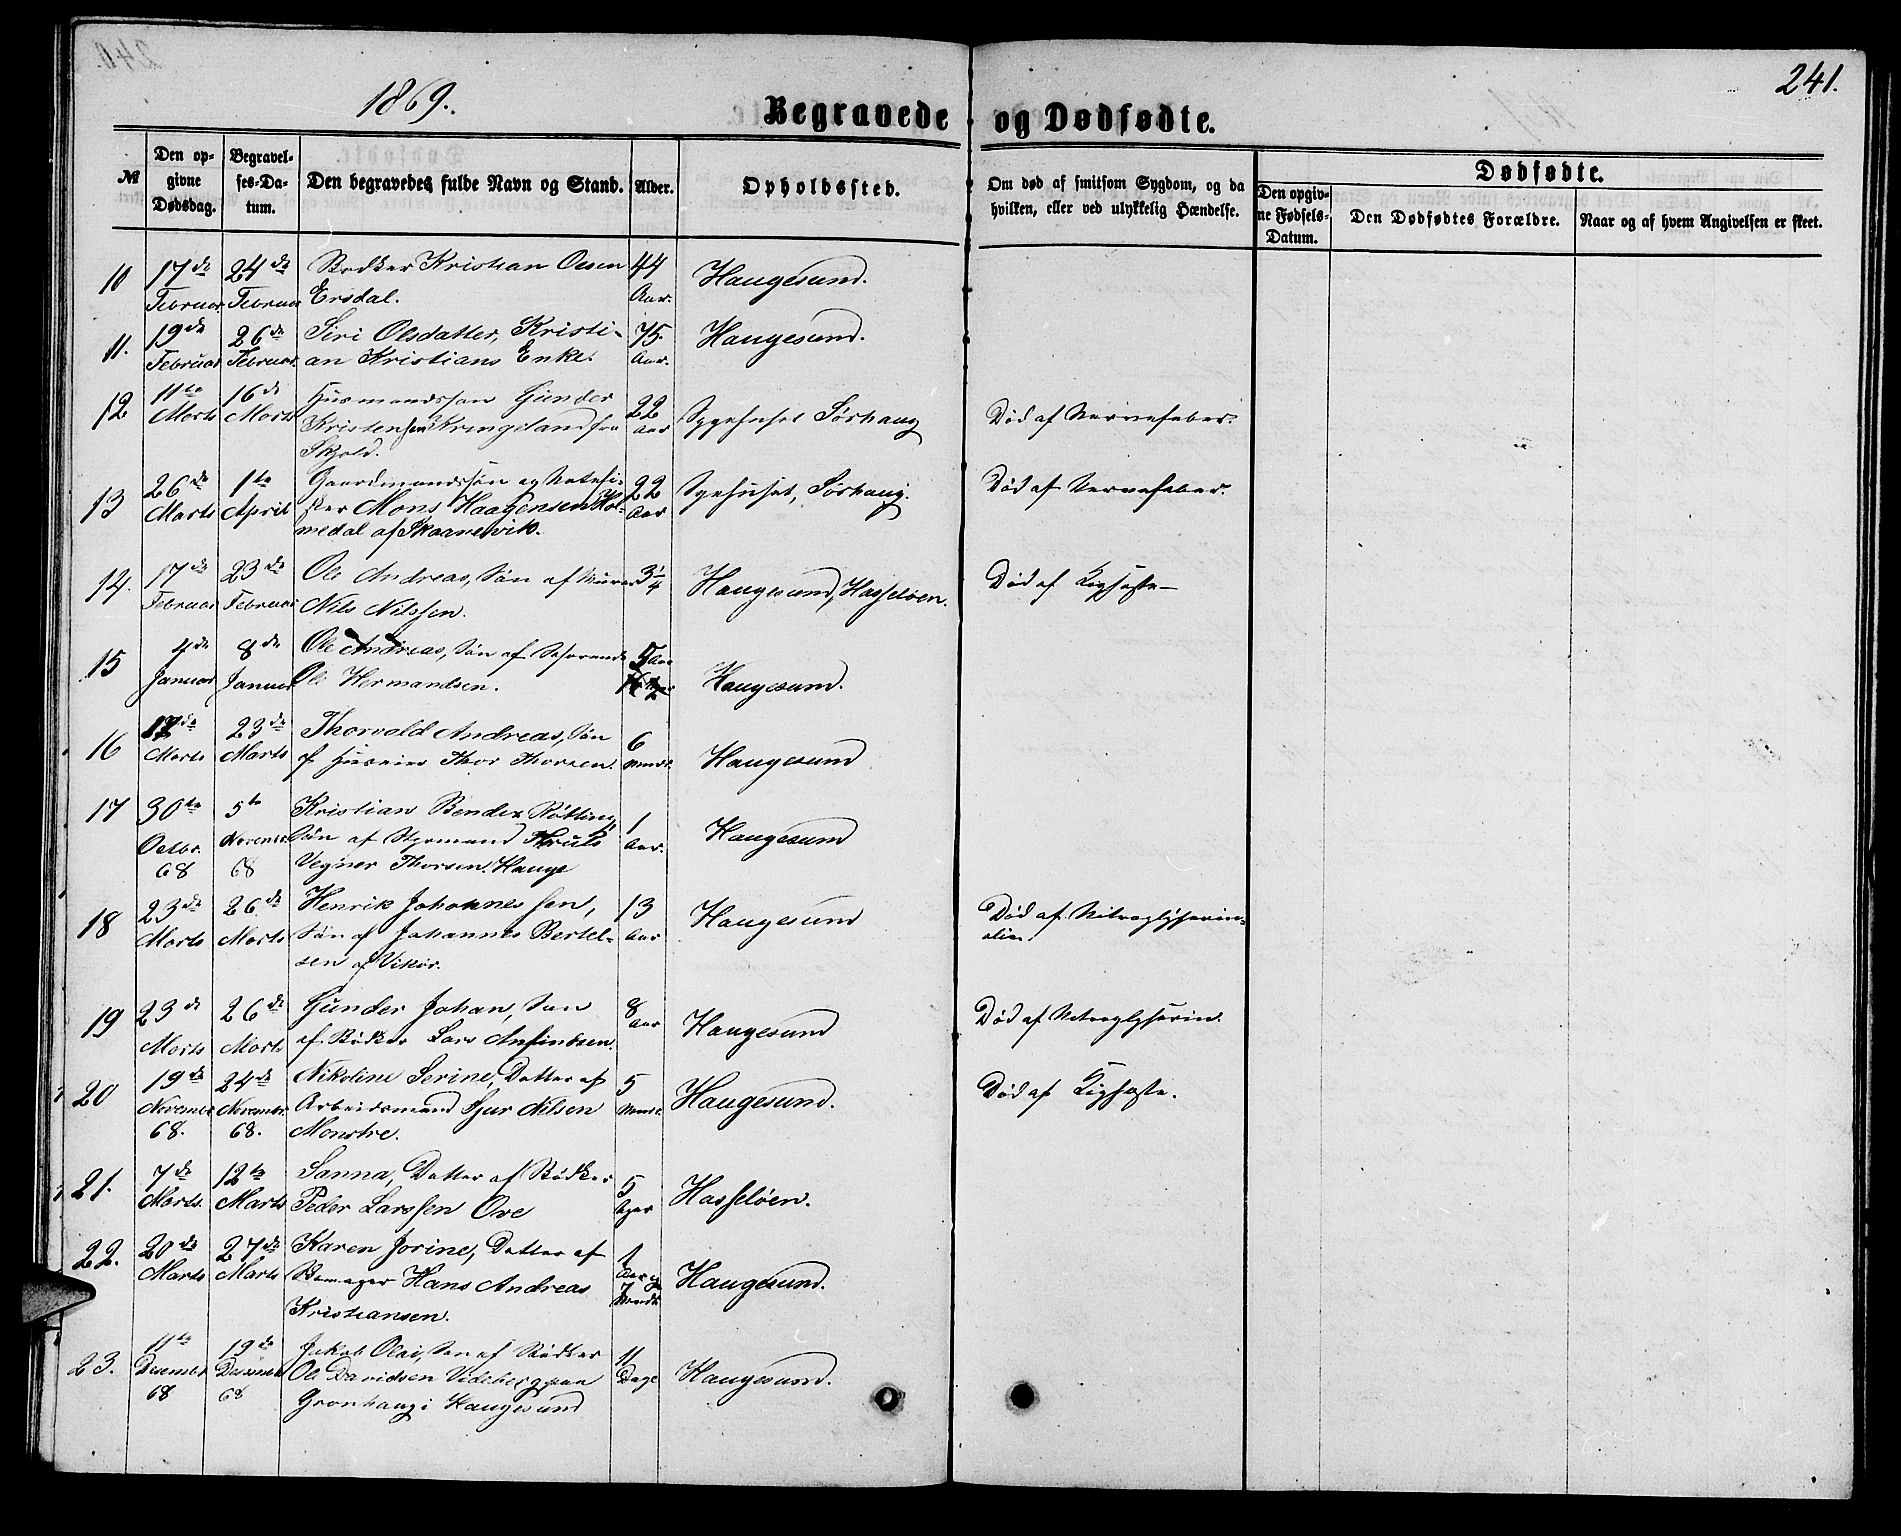 241.
1869.
Begravede og Dødfødte.
№
Den opgivne Dødsdag.
Begravelses-Datum.
Den begravedes fulde Navn og Stand.
Alder.
Opholdssted.
Om død af smitsom Sygdom, og da hvilken, eller ved ulykkelig Hændelse.
Dødfødte.
Den opgivne Fødsels-Datum.
Den Dødfødtes Forældre.
Naar og af hvem Angivelsen er skeet.
10 17de 24de Bødker Kristian Olsen 44
Februar Februar Ersdal. Aar. Haugesund.
11. 19de 26de Siri Olsdatter, Kristi- 75. Haugesund.
Februar Februar. an Kristians Enke. Aar.
12 11te 16de Husmandssøn Gunder 22
Marts Marts Kristensen Kringeland fra Aar Sygehuset Sørhaug Død af Nervefeber.
Skjold.
13 26de 1te Gaardmandssøn og 22 Sygehuset, Sørhaug. Død af Nervefeber.
Marts April Mons Haagensen Hol- Aar
medal af Skaanevik.
14. 17de 23de Ole Andreas, Søn af Murer 3¼ Haugesund, Hasseløen. Død af Kighoste
Februar Februar Nils Nilssen.
15 4de 8de Ole Andreas, Søn af
Januar Januar Ole Hermandsen. Haugesund.
16 23de Thorvald Andreas, Søn 6
Marts Marts af Huseier Thor Thorsen. Maand. Haugesund
17 30te 5te Kristian Bendex Røtting, 1
Octbr. November Søn af Styrmand Truls Aar. Haugesund
68 68 Vegner Thorsen Hauge
18 23de 26de Henrik Johannessen, 13 Haugesund Død af Nitroglyserin-
Marts Marts Søn af Johannes Bertel- Aar olie.
sen af Vikør.
19 23de 26de Gunder Johan, Søn 8 Haugesund Død af Nitroglyserin.
Marts Marts af Bødker Lars Anfindsen. Aar
20 19de 24de Nikoline Serine, Datter af 5 Haugesund. Død af Kighoste.
November November Arbeidsmand Sjur Nilsen Maand.
68. 68. Monstre.
21. 7de 12te Sanna, Datter af Bødker 5
Marts. Marts Peder Larssen Ove Uger Hasseløen.
22. 20de 27de Karen Jorine, Datter af 1
Marts Marts Hans Andreas Aar og 7 Haugesund.
Kristiansen. Maand.
23. 11te 19de Jakob Olai, Søn af Bødker 11
Desember Desember Ole Davidsen Videberg paa Dage Haugesund.
68 68 Grønhaug i Haugesund